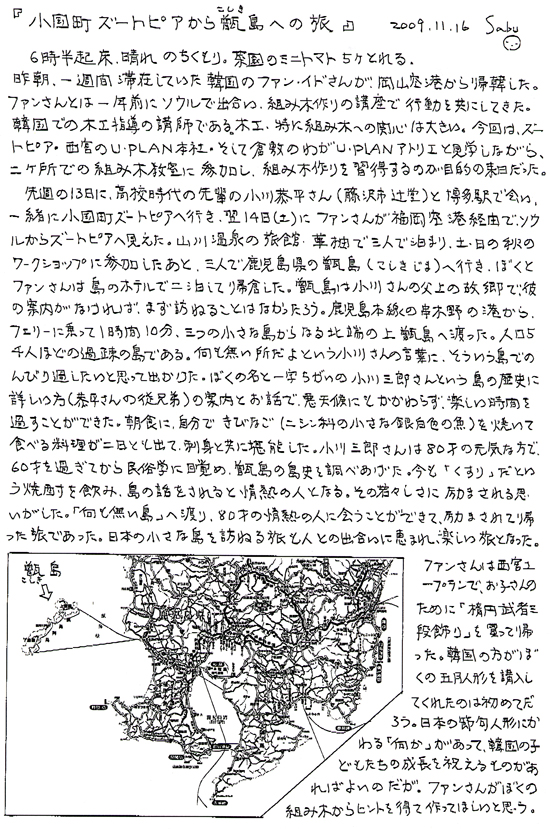 『小国町ズートピアから甑島への旅』 2009.11.16 Sabu
こしき
6時半起床、晴れのちくもり。菜園のミニトマト5ケとれる。
昨朝、一週間滞在していた韓国のファン・イドさんが、岡山空港から帰韓した。
ファンさんとは一年前にソウルで出合い、組み木作りの講座で行動を共にしてきた。
韓国での木工指導の講師である。木工、特に組み木への関心は大きい。今回は、ズー
トピア・西宮のU・PLAN本社・そして倉敷のわがU・PLANアトリエと見学しながら、
二ケ所での組み木教室に参加し、組み木作りを習得するのが目的の来日だった。
先週の13日に、高校時代の先輩の小川恭平さん(藤沢市辻堂)と博多駅で会い、
一緒に小国町ズートピアへ行き、翌14日(土)にファンさんが福岡空港経由で、ソウ
ルからズートピアへ見えた。山川温泉の旅館・草枕で三人で泊まり、土・日の秋の
ワークショップに参加したあと、三人で鹿児島県の甑島(こしきじま)へ行き、ぼくと
ファンさんは島のホテルで二泊して帰倉した。甑島は小川さんの父上の故郷で彼
の案内がなければ、まず訪ねることはなかったろう。鹿児島本線の串木野の港から、
フェリーに乗って1時間10分、三つの小さな島からなる北端の上甑島へ渡った。人口5
千人ほどの過疎の島である。何も無い所だよという小川さんの言葉に、そういう島での
んびり過したいと思って出かけた。ぼくの名と一字ちがいの小川三郎さんという島の歴史に
詳しい方(恭平さんの従兄弟)の案内とお話で、悪天候にもかかわらず、楽しい時間を
過すことができた。朝食に、自分できびなご(ニシン科の小さな銀白色の魚)を焼いて
食べる料理が二日とも出て、刺身と共に堪能した。小川三郎さんは80才の元気な方で、
60才を過ぎてから民俗学に目覚め、甑島の島史を調べあげた。今も「くすり」だとい
う焼酎を飲み、島の話をされると情熱の人となる。その若々しさに励まされる思
いがした。「何も無い島」へ渡り、80才の情熱の人に会うことができて、励まされて帰
った旅であった。日本の小さな島を訪ねる旅も人との出合いに恵まれ、楽しい旅となった。
甑島
こしき
ファンさんは西宮ユ
ープランで、お子さんの
ために「楕円武者三
段飾り」を買って帰
った。韓国の方がぼ
くの五月人形を購入し
てくれたのは初めてだ
ろう。日本の節句人形にか
わる「何か」があって、韓国の子
どもたちの成長を祝えるものがあ
ればよいのだが。ファンさんがぼくの
組み木からヒントを得て作ってほしいと思う。